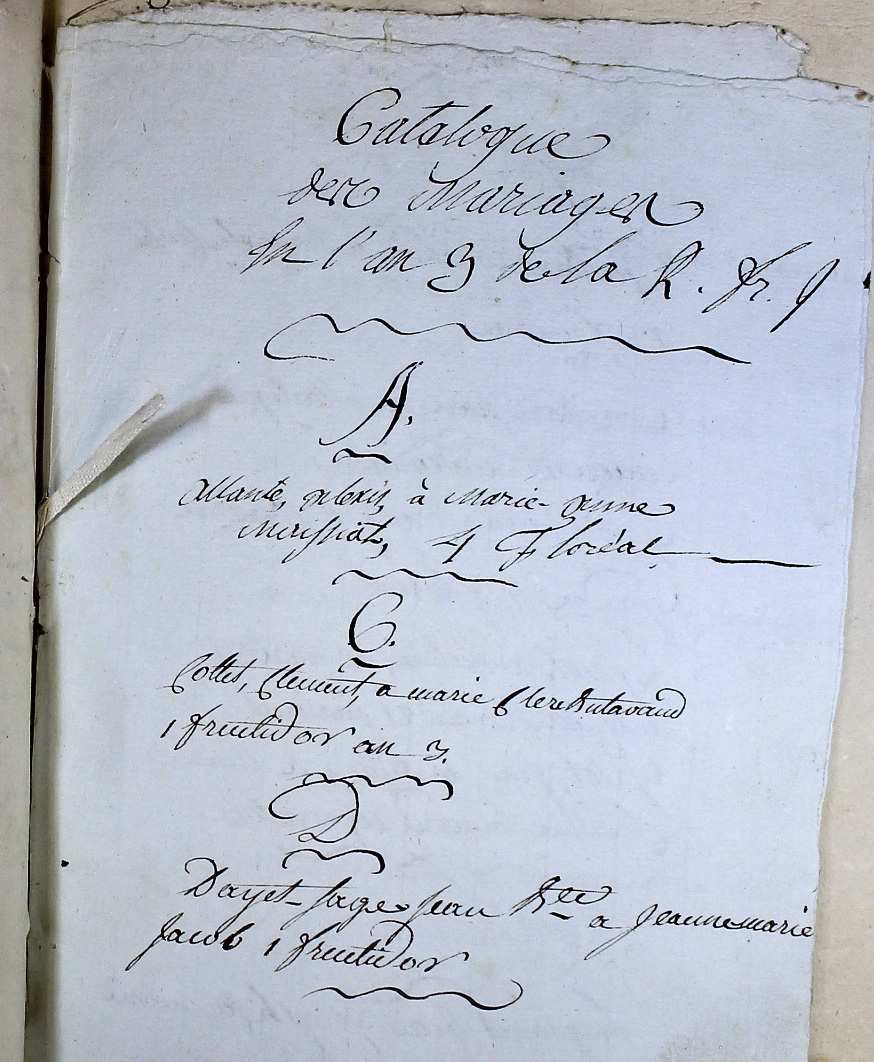 Catalogue
des Mariages
En l'an 3 de la R. fr.
A.
Allante, alexis, à Marie-anne
4 Floréal
C.
Collet, Clement, a marie Clere
1 fructidor an 3.
D
Dayet-sage Jean Bte a Jeanne marie
Jacob 1 fructidor